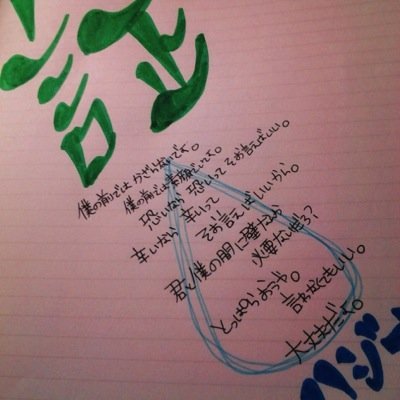 僕の前ではかざらないでよ。
僕の前では素顔でいてよ。
恐いなら 恐いって そお言えばいい。
辛いなら 辛いって
そお言えばいいから。
君と僕の間に壁なんか
必要ないだろ?
とっぱらおうか。
なくてもいい。
大丈夫だよ。